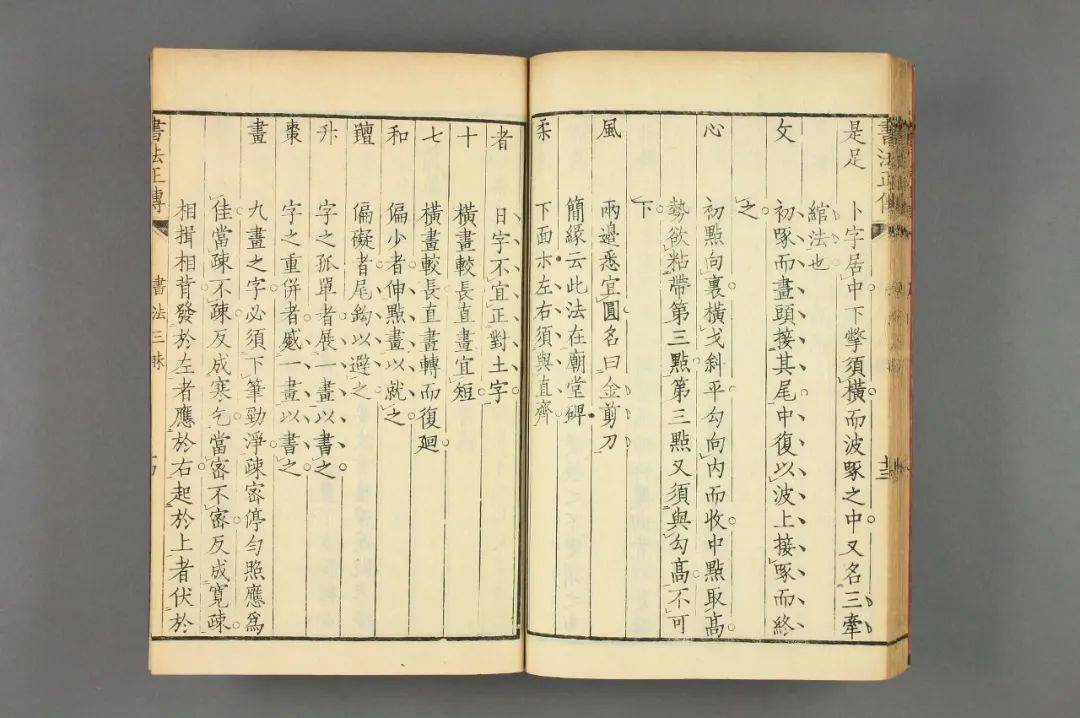 書法正傳
是足 卜字居中下撆須橫而波啄之中又名三牽
綰法也
文 初啄而畫頭接其尾中復以波上接啄而終
之
心 初點向裏橫戈斜平勾向內而收中點取高
勢欲粘帶第三點第三點又須與勾高不可
下
風 兩邊悉宜圓名曰金剪刀
簡緣云此法在廟堂碑
柔 下面木左右須與直齊
者 日字不宜正對土字
十 橫畫較長直畫宜短
七 橫畫較長直畫轉而復廻
和 偏少者伸點畫以就之
𤴁 偏礙者尾鈎以避之
升 字之孤單者展一畫以書之
棗 字之重併者蹙一畫以書之
畫 九畫之字必須下筆勁淨疎密停勻照應爲
佳當疎不疎反成寒乞當密不密反成寬疎
相揖相背發於左者應於右起於上者伏於
書法正傳 書法三昧